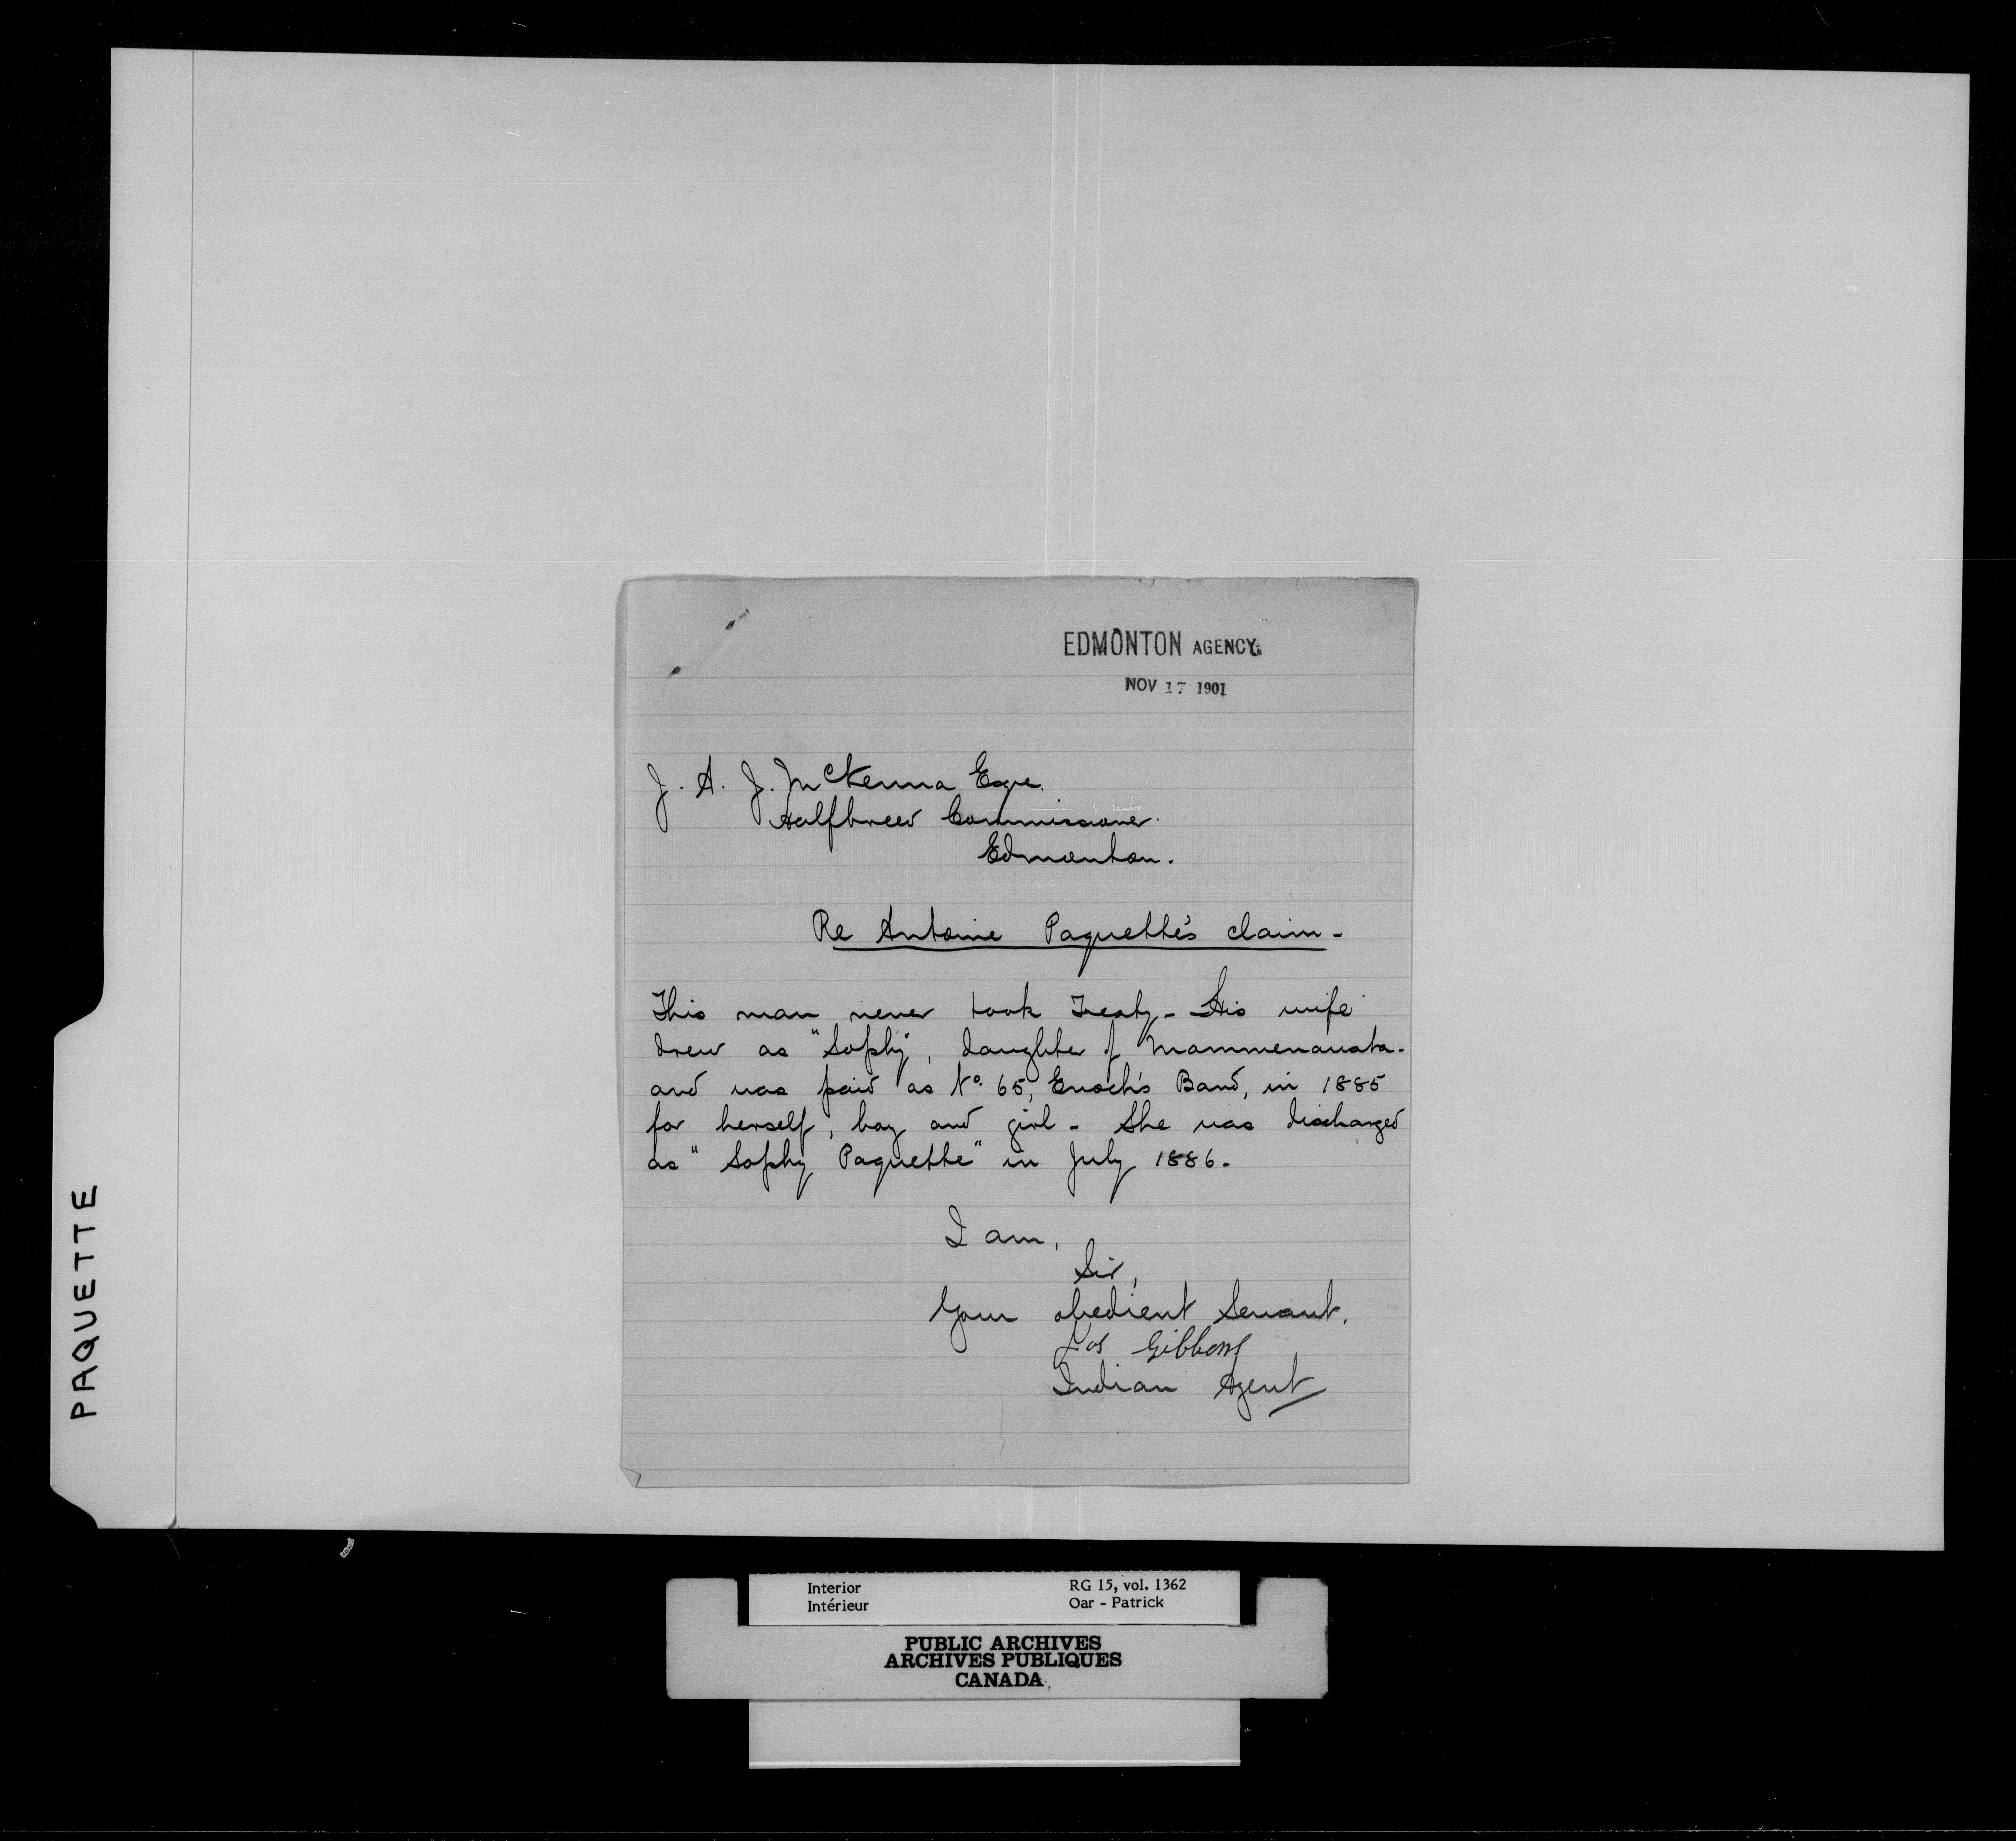 EDMONTON AGENCY.
NOV 17 1901
J. A. J. McKenna Esqre.
Halfbreed Commissioner.
Edmonton.
Re Antoine Paquette's claim -
This man never took Treaty - His wife
drew as "Sophy", daughter of Mammenawata -
and was paid as No. 65, Enoch's Band, in 1885
for herself, boy and girl - She was discharged
as "Sophy Paquette" in July 1886.
I am,
Sir,
Your obedient Servant.
Jas Gibbons
Indian Agent
PAQUETTE
Interior RG 15, vol. 1362
Intérieur Oar - Patrick
PUBLIC ARCHIVES
ARCHIVES PUBLIQUES
CANADA